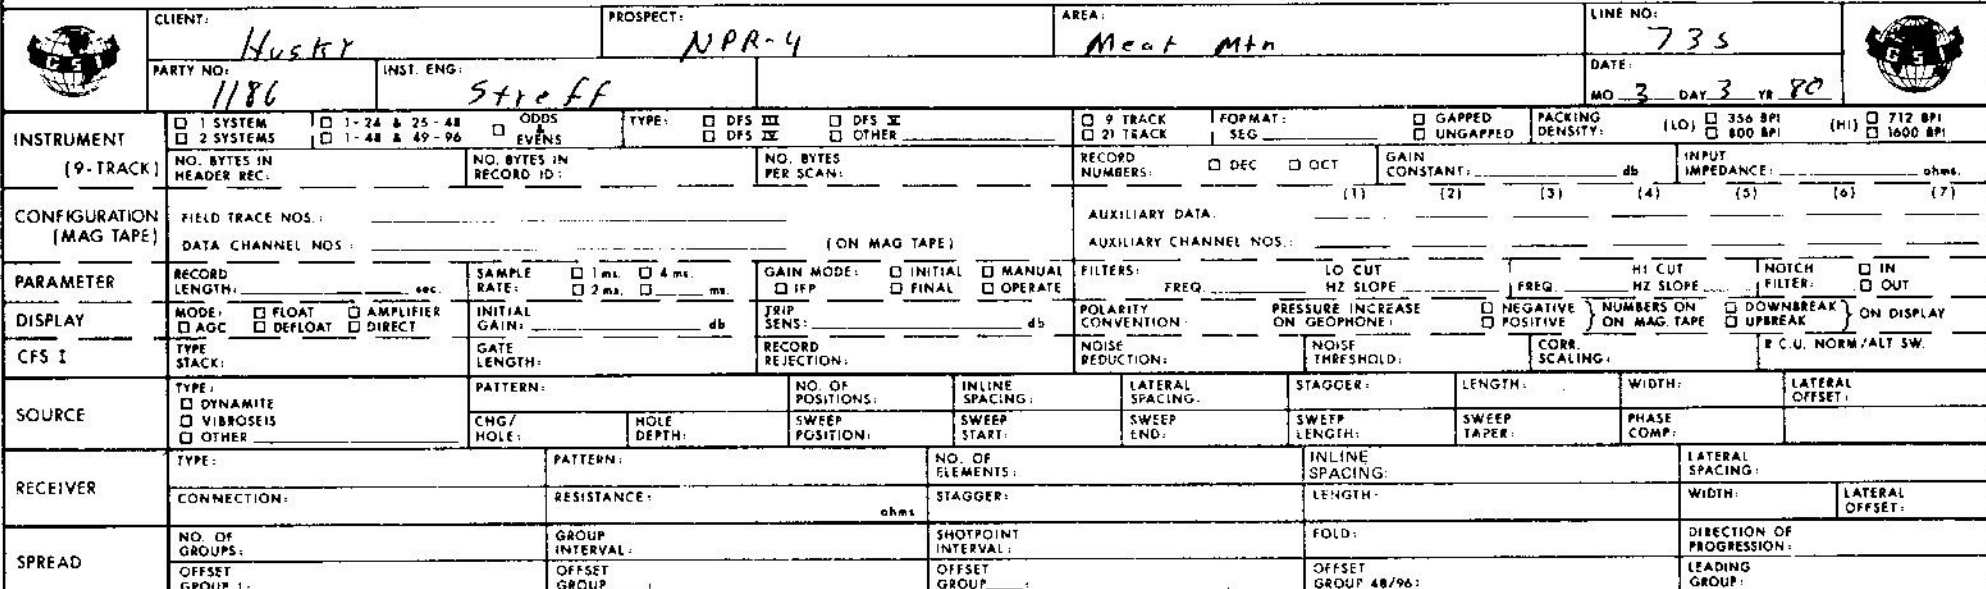 CLIENT: Husky PROSPECT: NPR-4 AREA: Meat Mtn LINE NO: 73S
GSI GSI
PARTY NO: 1186 INST. ENG: Streff DATE: MO 3 DAY 3 YR 80
INSTRUMENT (9-TRACK)
☐ 1 SYSTEM ☐ 1-24 & 25-48 ☐ ODDS & EVENS TYPE: ☐ DFS III ☐ DFS V ☐ 9 TRACK FORMAT: ☐ GAPPED PACKING DENSITY: (LO) ☐ 356 BPI (HI) ☐ 712 BPI
☐ 2 SYSTEMS ☐ 1-48 & 49-96 ☐ DFS IV ☐ OTHER ☐ 21 TRACK SEG ☐ UNGAPPED ☐ 800 BPI ☐ 1600 BPI
NO. BYTES IN HEADER REC: NO. BYTES IN RECORD ID: NO. BYTES PER SCAN: RECORD NUMBERS: ☐ DEC ☐ OCT GAIN CONSTANT: db INPUT IMPEDANCE: ohms.
CONFIGURATION (MAG TAPE)
(1) (2) (3) (4) (5) (6) (7)
FIELD TRACE NOS.: AUXILIARY DATA:
DATA CHANNEL NOS: (ON MAG TAPE) AUXILIARY CHANNEL NOS.:
PARAMETER
RECORD LENGTH: sec. SAMPLE RATE: ☐ 1 ms. ☐ 4 ms. ☐ 2 ms. ☐ ms. GAIN MODE: ☐ INITIAL ☐ MANUAL ☐ IFP ☐ FINAL ☐ OPERATE FILTERS: LO CUT FREQ. HZ SLOPE HI CUT FREQ. HZ SLOPE NOTCH FILTER: ☐ IN ☐ OUT
DISPLAY
MODE: ☐ FLOAT ☐ AMPLIFIER ☐ AGC ☐ DEFLOAT ☐ DIRECT INITIAL GAIN: db TRIP SENS: db POLARITY CONVENTION: PRESSURE INCREASE ON GEOPHONE: ☐ NEGATIVE ☐ POSITIVE } NUMBERS ON MAG. TAPE ☐ DOWNBREAK ☐ UPBREAK } ON DISPLAY
CFS I
TYPE STACK: GATE LENGTH: RECORD REJECTION: NOISE REDUCTION: NOISE THRESHOLD: CORR. SCALING: R.C.U. NORM/ALT SW.
SOURCE
TYPE: ☐ DYNAMITE ☐ VIBROSEIS ☐ OTHER
PATTERN: NO. OF POSITIONS: INLINE SPACING: LATERAL SPACING: STAGGER: LENGTH: WIDTH: LATERAL OFFSET:
CHG/HOLE: HOLE DEPTH: SWEEP POSITION: SWEEP START: SWEEP END: SWEEP LENGTH: SWEEP TAPER: PHASE COMP:
RECEIVER
TYPE: PATTERN: NO. OF ELEMENTS: INLINE SPACING: LATERAL SPACING:
CONNECTION: RESISTANCE: ohms STAGGER: LENGTH: WIDTH: LATERAL OFFSET:
SPREAD
NO. OF GROUPS: GROUP INTERVAL: SHOTPOINT INTERVAL: FOLD: DIRECTION OF PROGRESSION:
OFFSET GROUP 1: OFFSET GROUP : OFFSET GROUP : OFFSET GROUP 48/96: LEADING GROUP: